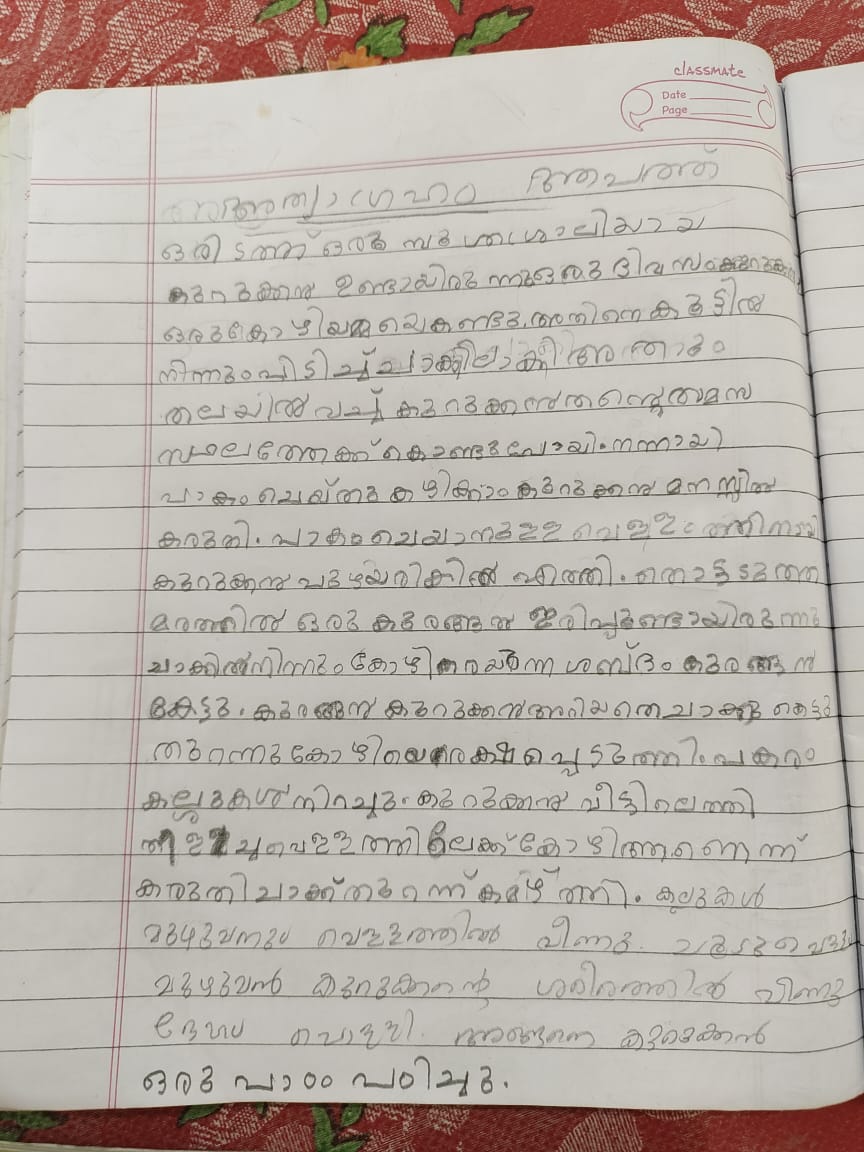 classmate
Date
Page
അത്യാഗ്രഹം ആപത്ത്
ഒരിടത്ത് ഒരു സൂത്രശാലിയായ
കുറുക്കൻ ഉണ്ടായിരുന്നു ഒരു ദിവസം കുറുക്കൻ
ഒരു കോഴിയെ കണ്ടു. അതിനെ കൂട്ടിൽ
നിന്നും പിടിച്ച് ചാക്കിലാക്കി
തലയിൽ വച്ച് കുറുക്കൻ തന്റെ താമസ
സ്ഥലത്തേക്ക് കൊണ്ടുപോയി. നന്നായി
പാകം ചെയ്തു കഴിക്കാം കുറുക്കൻ മനസ്സിൽ
കരുതി. പാകം ചെയാനുള്ള വെള്ളം
കുറുക്കൻ പുഴയരികിൽ എത്തി. തൊട്ടടുത്ത
മരത്തിൽ ഒരു കുരങ്ങൻ ഇരിപ്പുണ്ടായിരുന്നു
ചാക്കിൽ നിന്നും കോഴി കരയുന്ന ശബ്ദം കുരങ്ങൻ
കേട്ടു. കുരങ്ങൻ കുറുക്കൻ അറിയതെ ചാക്കു കെട്ടു
തുറന്നു കോഴിയെ രക്ഷപ്പെടുത്തി. പകരം
കല്ലുകൾ നിറച്ചു. കുറുക്കൻ വീട്ടിലെത്തി
തിളച്ച വെള്ളത്തിലേക്ക് കോഴിത്തന്നെണെന്ന്
കരുതി ചാക്ക് തുറന്ന് കമഴ്ത്തി. കല്ലുകൾ
മുഴുവനും വെള്ളത്തിൽ വീണു. ചൂടുവെള്ളം
മുഴുവൻ കുറുക്കന്റെ ശരീരത്തിൽ വീണു
ദേഹം പൊള്ളി. അങ്ങനെ കുറുക്കൻ
ഒരു പാഠം പഠിച്ചു.